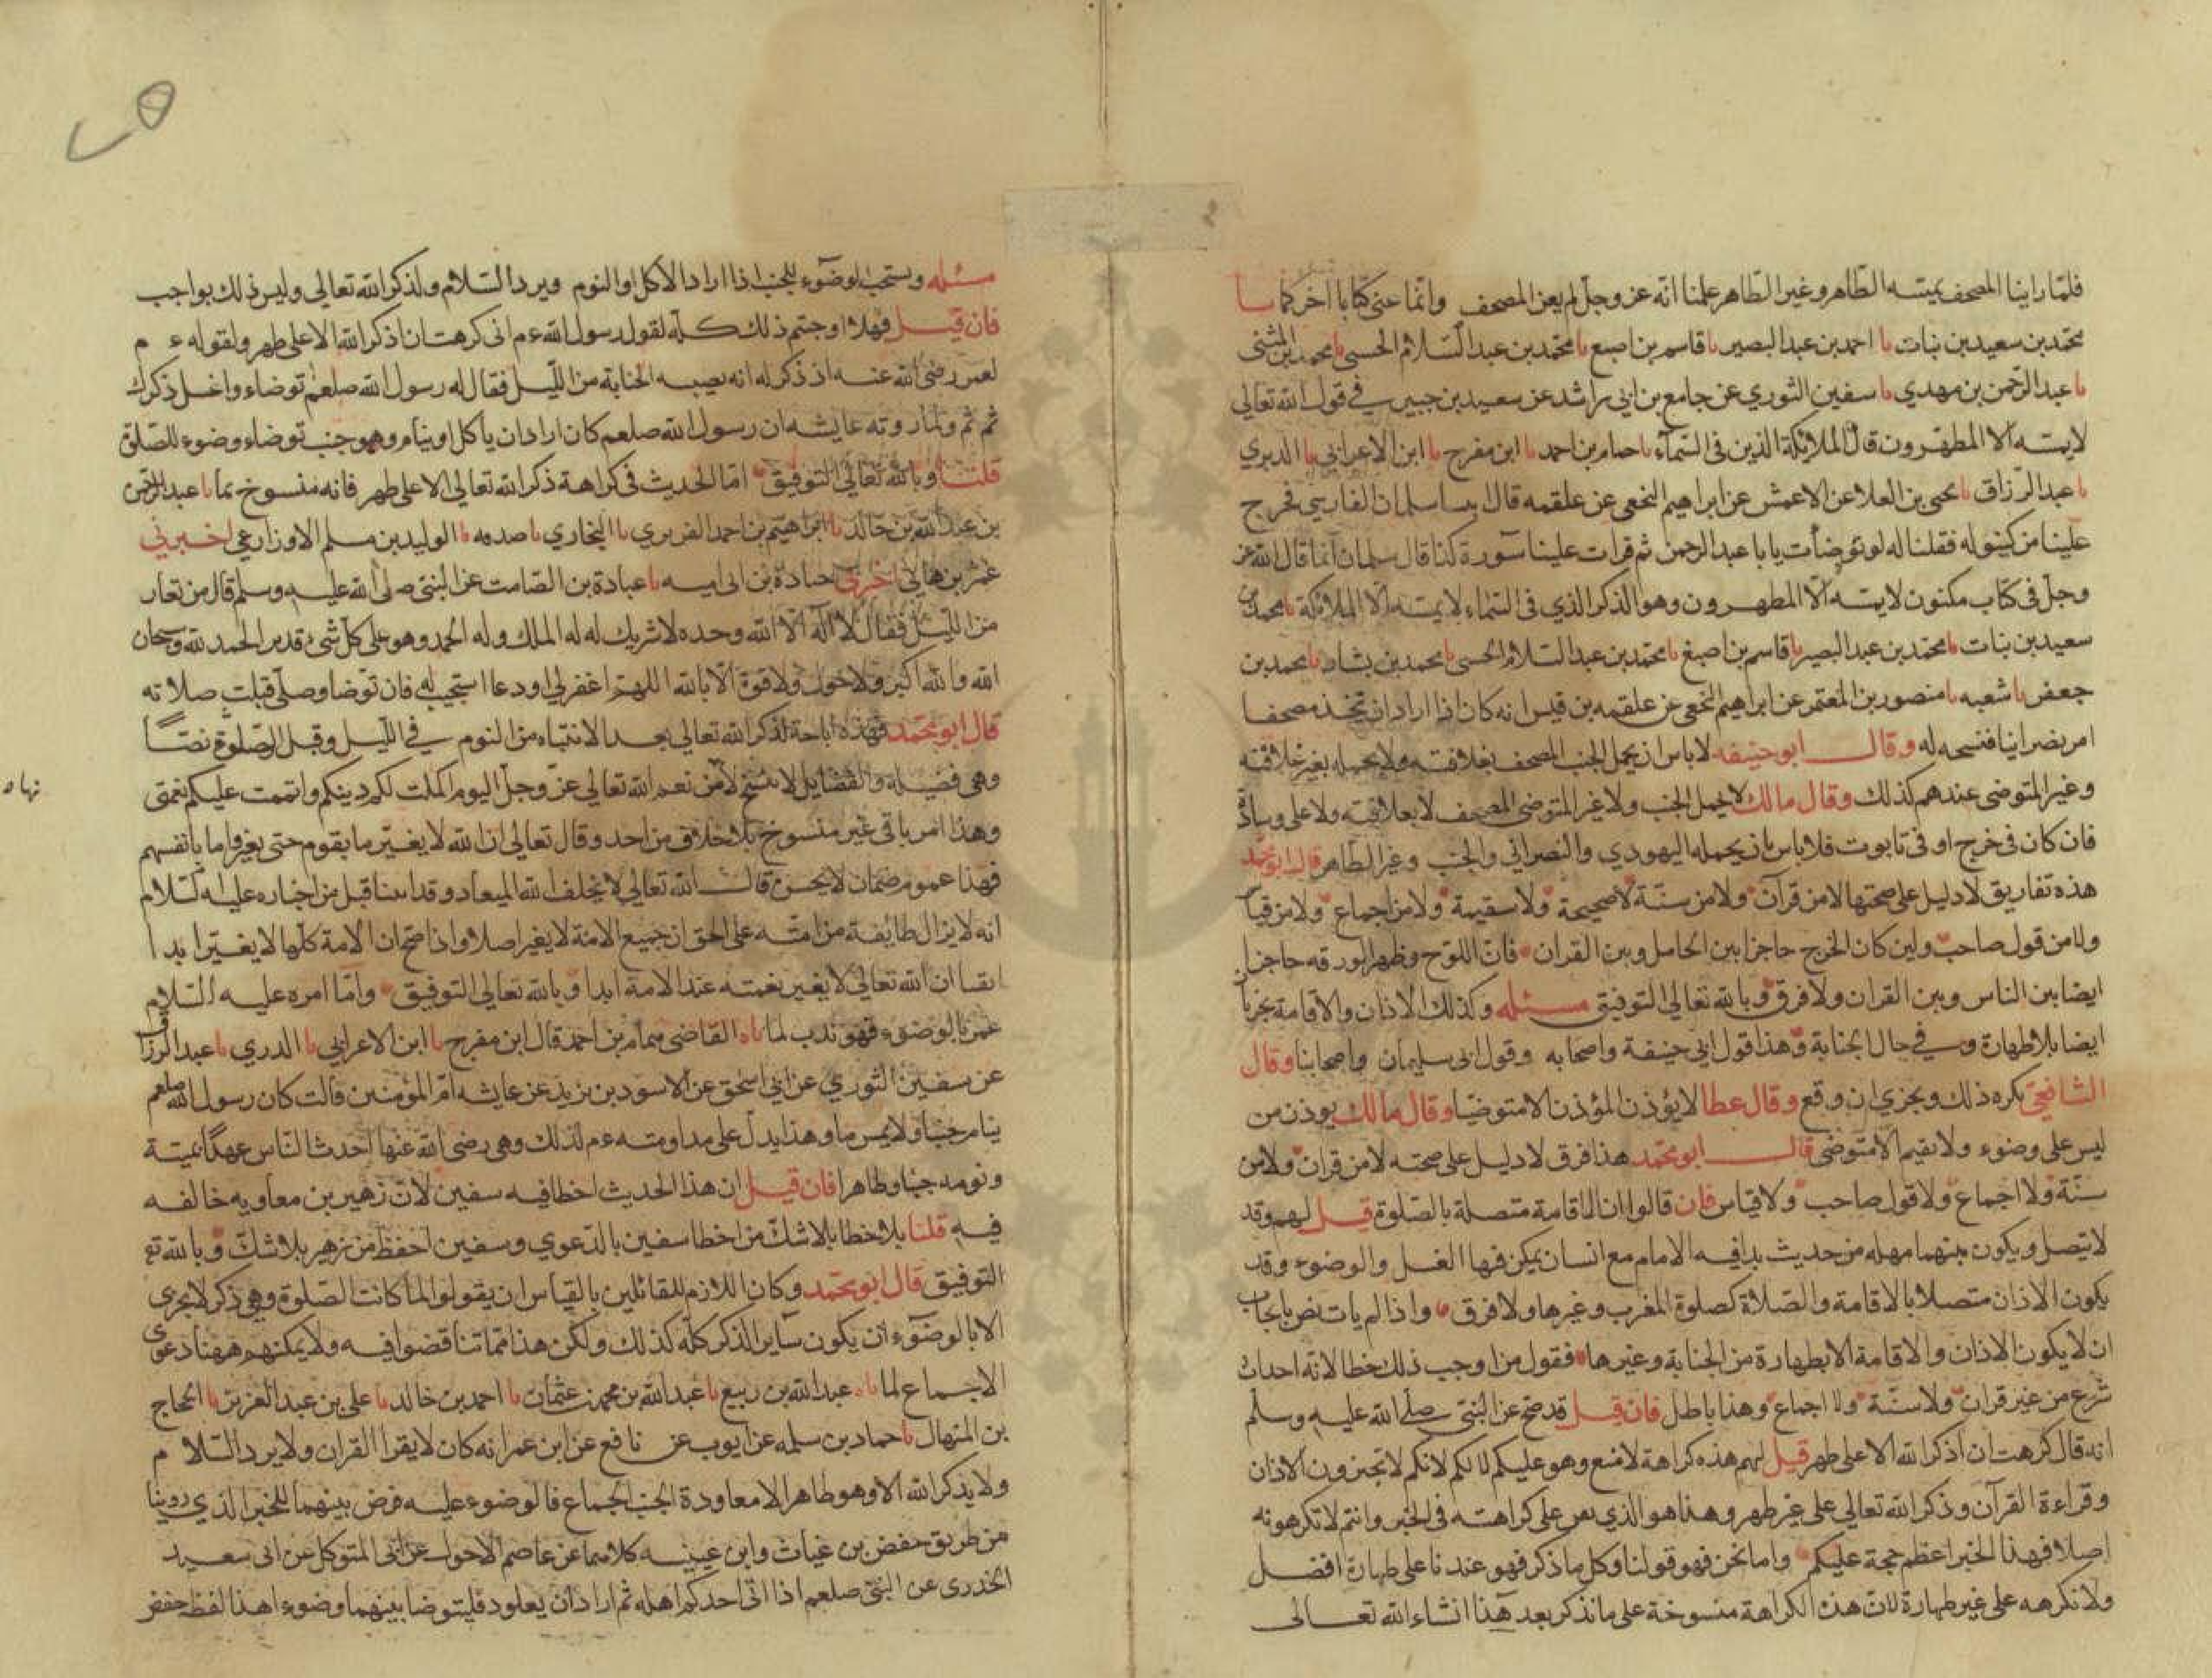 فلما راينا المصحف يمسه الطاهر وغير الطاهر علمنا انه عز وجل لم يعن المصحف وانما عنى كتابا اخر كما نا
محمد بن سعيد بن نبات نا احمد بن عبد البصير نا قاسم بن اصبع نا محمد بن عبد السلام الخسى نا محمد بن المثنى
نا عبد الرحمن بن مهدي نا سفين الثوري عن جامع بن ابي راشد عن سعيد بن جبير في قول الله تعالى
لا يمسه الا المطهرون قال الملائكة الذين في السماء نا حمام بن احمد نا ابن مفرج نا ابن الاعرابي نا الدبري
نا عبد الرزاق نا يحيى بن العلا عن الاعمش عن ابراهيم النخعي عن علقمه قال اتينا سلمان الفارسي فخرج
علينا من كنيف له فقلنا له لو توضأت يا با عبد الرحمن ثم قرات علينا سورة كذا قال سلمان انما قال الله عز
وجل في كتاب مكنون لا يمسه الا المطهرون وهو الذكر الذي في السماء لا يمسه الا الملائكة نا محمد بن
سعيد بن نبات نا محمد بن عبد البصير نا قاسم بن اصبغ نا محمد بن عبد السلام الخسى نا محمد بن بشار نا محمد بن
جعفر نا شعبه نا منصور بن المعتمر عن ابراهيم النخعي عن علقمه بن قيس انه كان اذا اراد ان يتخذ مصحفا
امر نصرانيا فنسخه له وقال ابو حنيفه لا باس ان يحمل الجنب المصحف بعلاقته ولا يحمله بغير علاقته
وغير المتوضى عندهم كذلك وقال مالك لا يحمل الجنب ولا غير المتوضى المصحف لا بعلاقته ولا على وسادة
فان كان في خرج او في تابوت فلا باس بان يحمله اليهودي والنصراني والجنب وغير الطاهر قال ابو محمد
هذه تفاريق لا دليل على صحتها لا من قرآن ولا من سنة لا صحيحة ولا سقيمة ولا من اجماع ولا من قياس
ولا من قول صاحب ولين كان الخرج حاجزا بين الحامل وبين القران فان اللوح وظهر الورقه حاجز
ايضا بين الناس وبين القران ولا فرق وبالله تعالى التوفيق مسئله وكذلك الاذان والاقامة يجزيان
ايضا بلا طهارة وفي حال الجنابة وهذا قول ابي حنيفة واصحابه وقول ابى سليمان واصحابنا وقال
الشافعي يكره ذلك ويجزي ان وقع وقال عطا لا يؤذن المؤذن الا متوضيا وقال مالك يوذن من
ليس على وضوء ولا يقيم الا متوضى قال ابو محمد هذا فرق لا دليل على صحته لا من قران ولا من
سنة ولا اجماع ولا قول صاحب ولا قياس فان قالوا ان الاقامة متصلة بالصلوة قيل لهم وقد
لا يتصل ويكون بينهما مهله من حديث بدافيه الامام مع انسان يمكن فيها الغسل والوضوء وقد
يكون الاذان متصلا بالاقامة والصلاة كصلوة المغرب وغيرها ولا فرق واذا لم يات نص بايجاب
ان لا يكون الاذان والاقامة الا بطهارة من الجنابة وغيرها فقول من اوجب ذلك خطا لانه احداث
شرع من غير قران ولا سنة ولا اجماع وهذا باطل فان قيل قد صح عن النبى صلى الله عليه وسلم
انه قال كرهت ان اذكر الله الا على طهر قيل لهم هذه كراهة لا منع وهو عليكم لا لكم لانكم لا تجيزون الاذان
وقراءة القرآن وذكر الله تعالى على غير طهر وهذا هو الذي نص على كراهته في الخبر وانتم لا تكرهونه
اصلا فهذا الخبر اعظم حجة عليكم واما نحن فهو قولنا وكل ما ذكر فهو عندنا على طهارة افضل
ولا نكرهه على غير طهارة لان هذه الكراهة منسوخة على ما نذكر بعد هذا ان شاء الله تعالى
مسئله ويستحب الوضوء للجنب اذا اراد الاكل او النوم ويرد السلام ولذكر الله تعالى وليس ذلك بواجب
فان قيل فهلا اوجبتم ذلك كله لقول رسول الله عم انى كرهت ان اذكر الله الا على طهر ولقوله ع م
لعمر رضى الله عنه اذ ذكر له انه تصيبه الجنابة من الليل فقال له رسول الله صلعم توضاء واغسل ذكرك
ثم نم ولما روته عايشه ان رسول الله صلعم كان اراد ان ياكل او ينام وهو جنب توضاء وضوء للصلوة
قلنا وبالله تعالى التوفيق اما الحديث في كراهة ذكر الله تعالى الا على طهر فانه منسوخ بما نا عبد الرحمن
بن عبد الله بن خالد نا ابراهيم بن احمد الفربري نا البخاري نا صدقه نا الوليد بن مسلم الاوزاعي اخبرني
عمر بن هاني اخبرني جنادة بن ابى اميه نا عبادة بن الصامت عن النبى صلى الله عليه وسلم قال من تعار
من الليل فقال لا اله الا الله وحده لا شريك له له الملك وله الحمد وهو على كل شى قدير الحمد لله وسبحان
الله والله اكبر ولا حول ولا قوة الا بالله اللهم اغفر لي او دعا استجيب له فان توضا وصلى قبلت صلاته
قال ابو محمد فهذه اباحة لذكر الله تعالى بعد الانتباه من النوم في الليل وقبل الصلوة نصا
وهى فضيلة والفضايل لا تنسخ لانها من نعم الله تعالى عز وجل اليوم اكملت لكم دينكم واتممت عليكم نعمتى
وهذا امر باقى غير منسوخ بلا خلاف من احد وقال تعالى ان الله لا يغير ما بقوم حتى يغيروا ما بانفسهم
فهذا عموم ضمان لا يخس قال الله تعالى لا يخلف الله الميعاد وقد اتينا قبل من اخباره عليه السلام
انه لا يزال طائفة من امته على الحق ان جميع الامة لا يغير اصلا واذا صح ان الامة كلها لا يغير ابدا
ايقنا ان الله تعالى لا يغير نعمته عند الامة ابدا وبالله تعالى التوفيق واما امره عليه السلام
عمر بالوضوء فهو ندب لما ناه القاضى حمام بن احمد قال ابن مفرج نا ابن الاعرابي نا الدبري نا عبد الرزاق
عن سفين الثوري عن ابي اسحق عن الاسود بن يزيد عن عايشه ام المؤمنين قالت كان رسول الله صلعم
ينام جنبا ولا يمس ما وهذا يدل على مداومته عم لذلك وهى رضى الله عنها احدث الناس عهدا بمبيته
ونومه جنبا وطاهرا فان قيل ان هذا الحديث اخطا فيه سفين لان زهير بن معاويه خالفه
فيه قلنا بلا خطا بلا شك من اخطا سفين بالدعوي وسفين احفظ من زهير بلا شك وبالله تع
التوفيق قال ابو محمد وكان اللازم للقائلين بالقياس ان يقولوا لما كانت الصلوة وهي ذكر لا يجزى
الا بالوضوء ان يكون ساير الذكر كله كذلك ولكن هذا مما تناقضوا فيه ولا يمكنهم ههنا دعوى
الاجماع لما ناه عبد الله بن ربيع نا عبد الله بن محمد بن عثمان نا احمد بن خالد نا على بن عبد العزيز نا الحجاج
بن المنهال نا حماد بن سلمه عن ايوب عن نافع عن ابن عمر انه كان لا يقرا القران ولا يرد السلا م
ولا يذكر الله الا وهو طاهر الا معاودة الجنب الجماع فالوضوء عليه فرض بينهما للخبر الذي روينا
من طريق حفص بن غياث وابن عيينه كلاهما عن عاصم الاحول عن ابى المتوكل عن ابى سعيد
الخدرى عن النبى صلعم اذا اتى احدكم اهله ثم اراد ان يعاود فليتوضا بينهما وضوء اهذا لفظ حفص